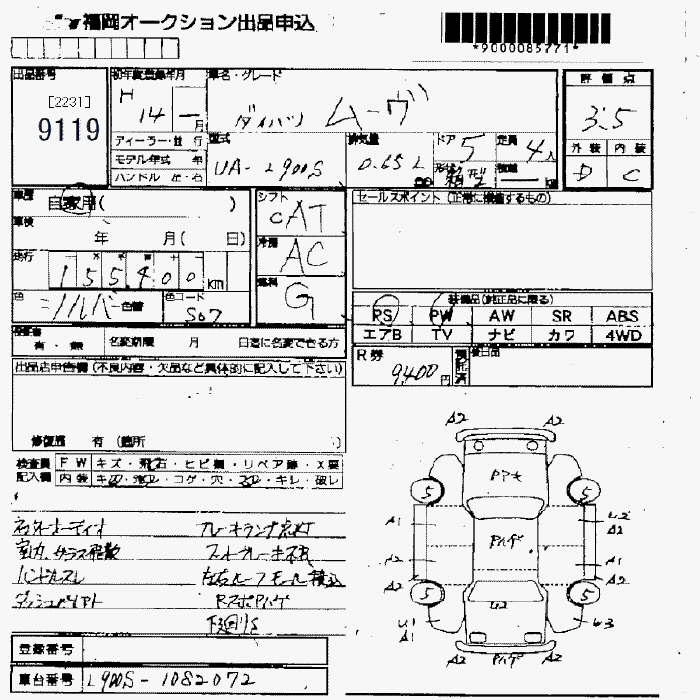 福岡オークション出品申込
*9000085771*
出品番号
[2231]
9119
初年度登録年月
H 14 年 一 月
車名・グレード
ダイハツ ムーヴ
評価点
3.5
外装 内装
D C
ディーラー・並行
モデル年式 年
ハンドル 左・右
型式
UA-L900S
排気量
0.65 L
ドア
5
形状
箱
定員
4人
積載
車歴
自家用( )
車検
年 月( 日)
走行
155,400 KM
色
シルバー 色替
色コード
S07
シフト
CAT
冷房
AC
燃料
G
セールスポイント(正常に機能するもの)
装備品(純正品に限る)
PS PW AW SR ABS
エアB TV ナビ カワ 4WD
保証書
有・無
名変期限 月 日迄に名変できる方
R券
9,400円
預託済
後日品
出品店申告欄(不良内容・欠品など具体的に記入して下さい)
修復歴 有(箇所 )
検査員
記入欄
FW キズ・飛石・ヒビ割・リペア跡・X要
内装 キズ・汚レ・コゲ・穴・スレ・キレ・破レ
ハンドルスレ
ブレーキランプ
下廻りS
A2 A2
Pアセ
5 5
A1 Pハゲ U2
A2
A2 A1
A2 A2
5 5
U2
U1
A1
U3
A2 Pハゲ A2
登録番号
車台番号
L900S-1082072